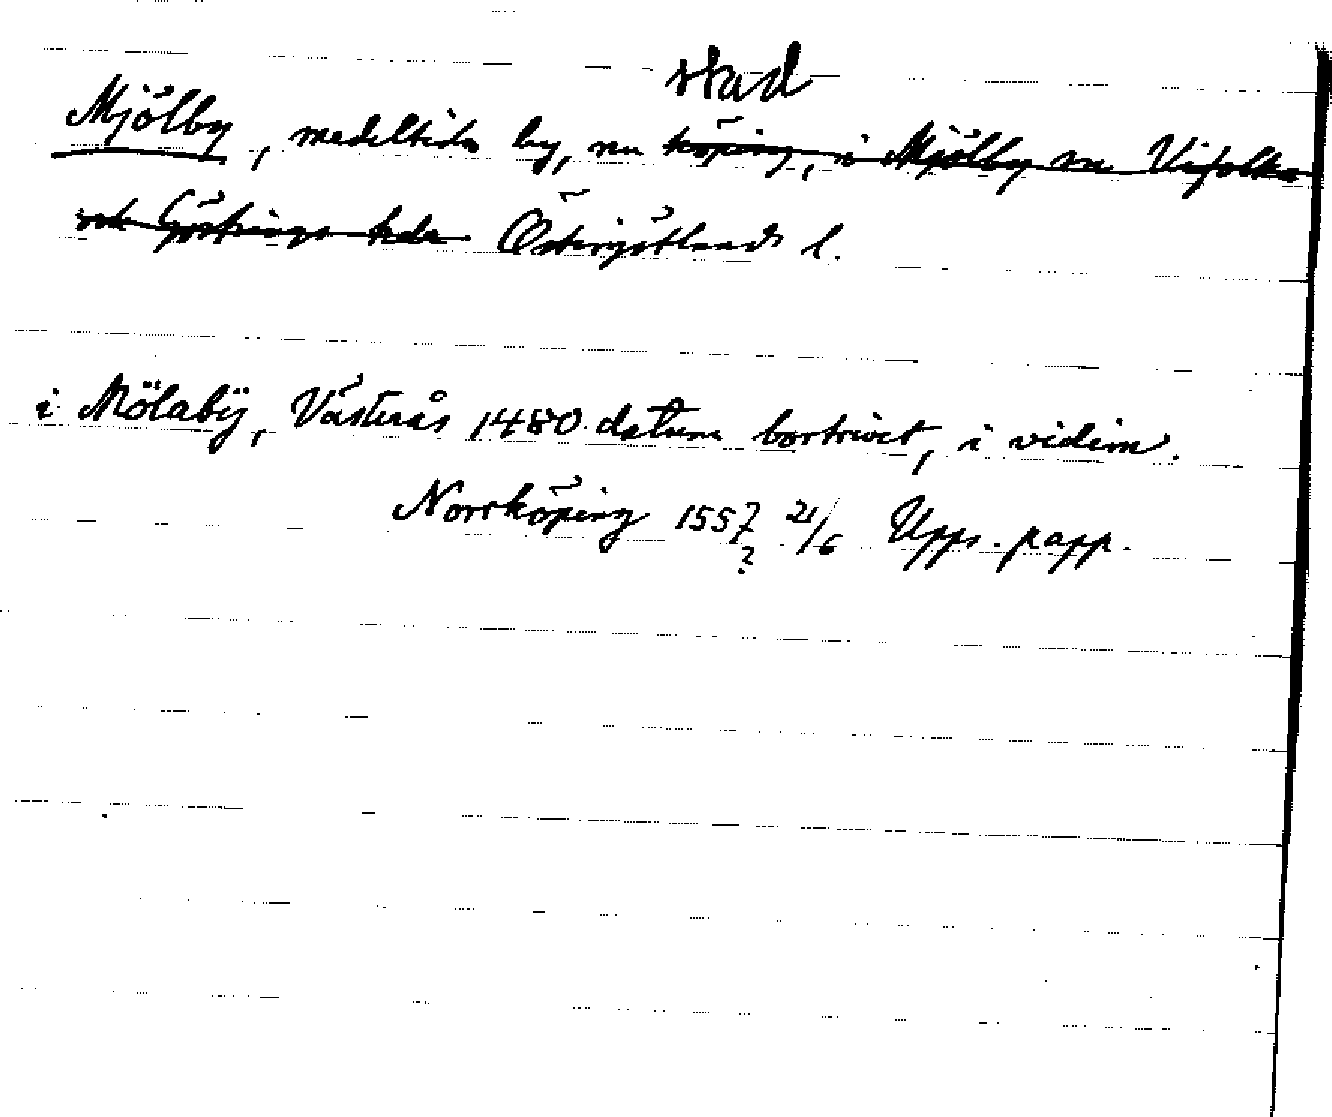 stad
Mjölby, medeltida by, nu köping, i Mjölby sn Vifolka
och Göstrings hdr Östergötlands l.
i Mölabÿ, Västerås 1480 datum bortrivet, i vidim.
Norrköping 1557 21/6 Upps. papp.
?